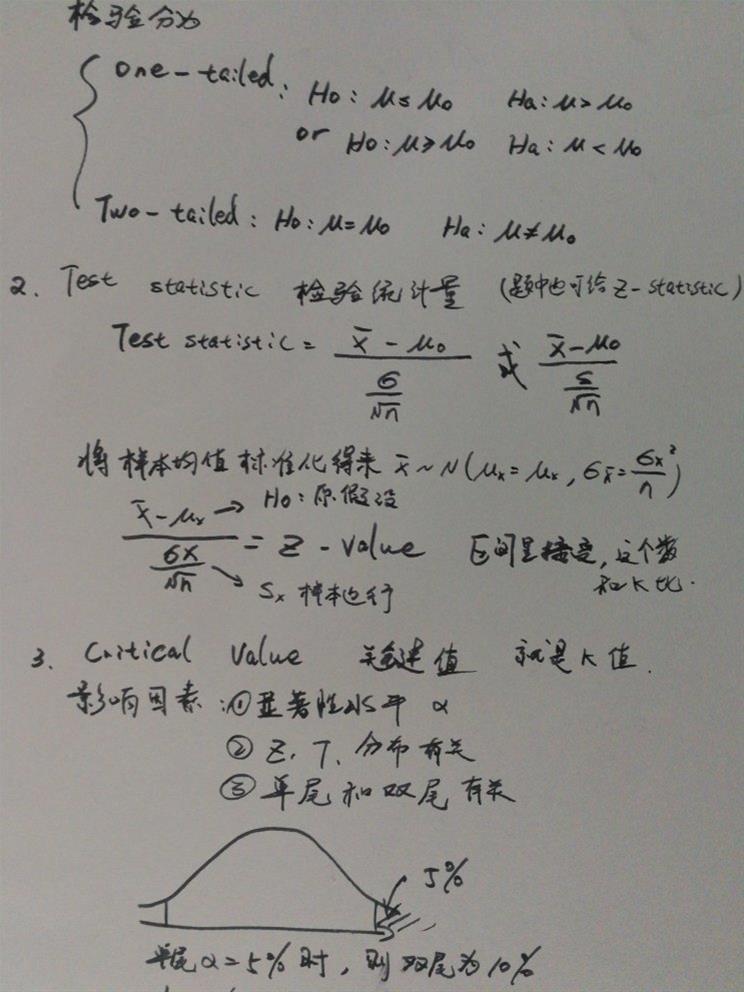 检验分为
One-tailed: Ho: μ≤μo Ha: μ>μo
or Ho: μ≥μo Ha: μ<μo
Two-tailed: Ho: μ=μo Ha: μ≠μo
2. Test statistic 检验统计量 (题中也可给Z-statistic)
Test statistic = (x̄-μo)/(σ/√n) 或 (x̄-μo)/(s/√n)
将样本均值标准化得来 x̄~N(μx=μx, σx̄=σx²/n)
(x̄-μx)/(σx/√n) = Z-value
→ Ho: 原假设
→ Sx 样本也行
区间里接受, 这个数
和K比.
3. Critical Value 关键值 就是K值.
影响因素: ①显著性水平 α
② Z、T、分布有关
③ 单尾和双尾有关
5%
单尾α=5%时, 则双尾为10%